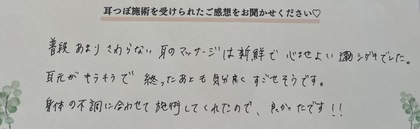 耳つぼ施術を受けられたご感想をお聞かせください♡
普段あまりさわらない耳のマッサージは新鮮で心地よい刺激でした。
耳元がキラキラで終ったあとも気分良くすごせそうです。
身体の不調に合わせて施術してくれたので、良かったです!!